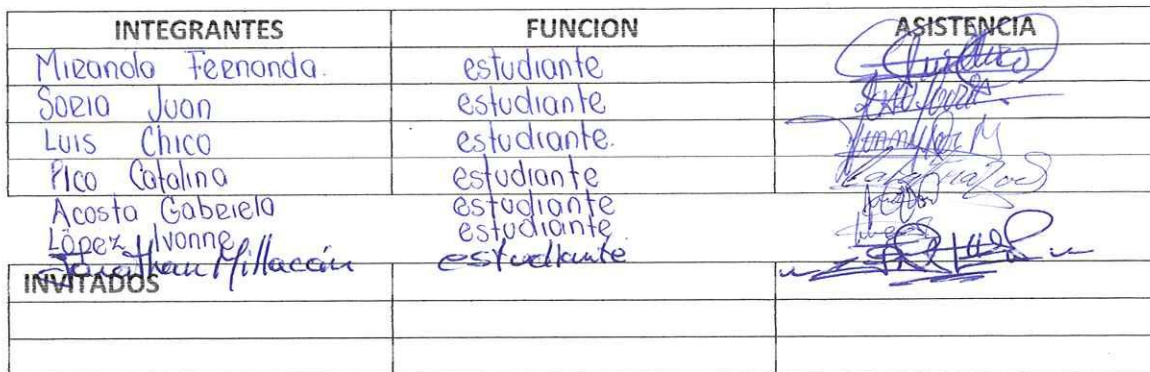 INTEGRANTES FUNCION ASISTENCIA
Miranda Fernanda. estudiante
Soria Juan estudiante
Luis Chico estudiante.
Pico Catalina estudiante
Acosta Gabriela estudiante
López Ivonne estudiante
Jonathan Millacán estudiante
INVITADOS